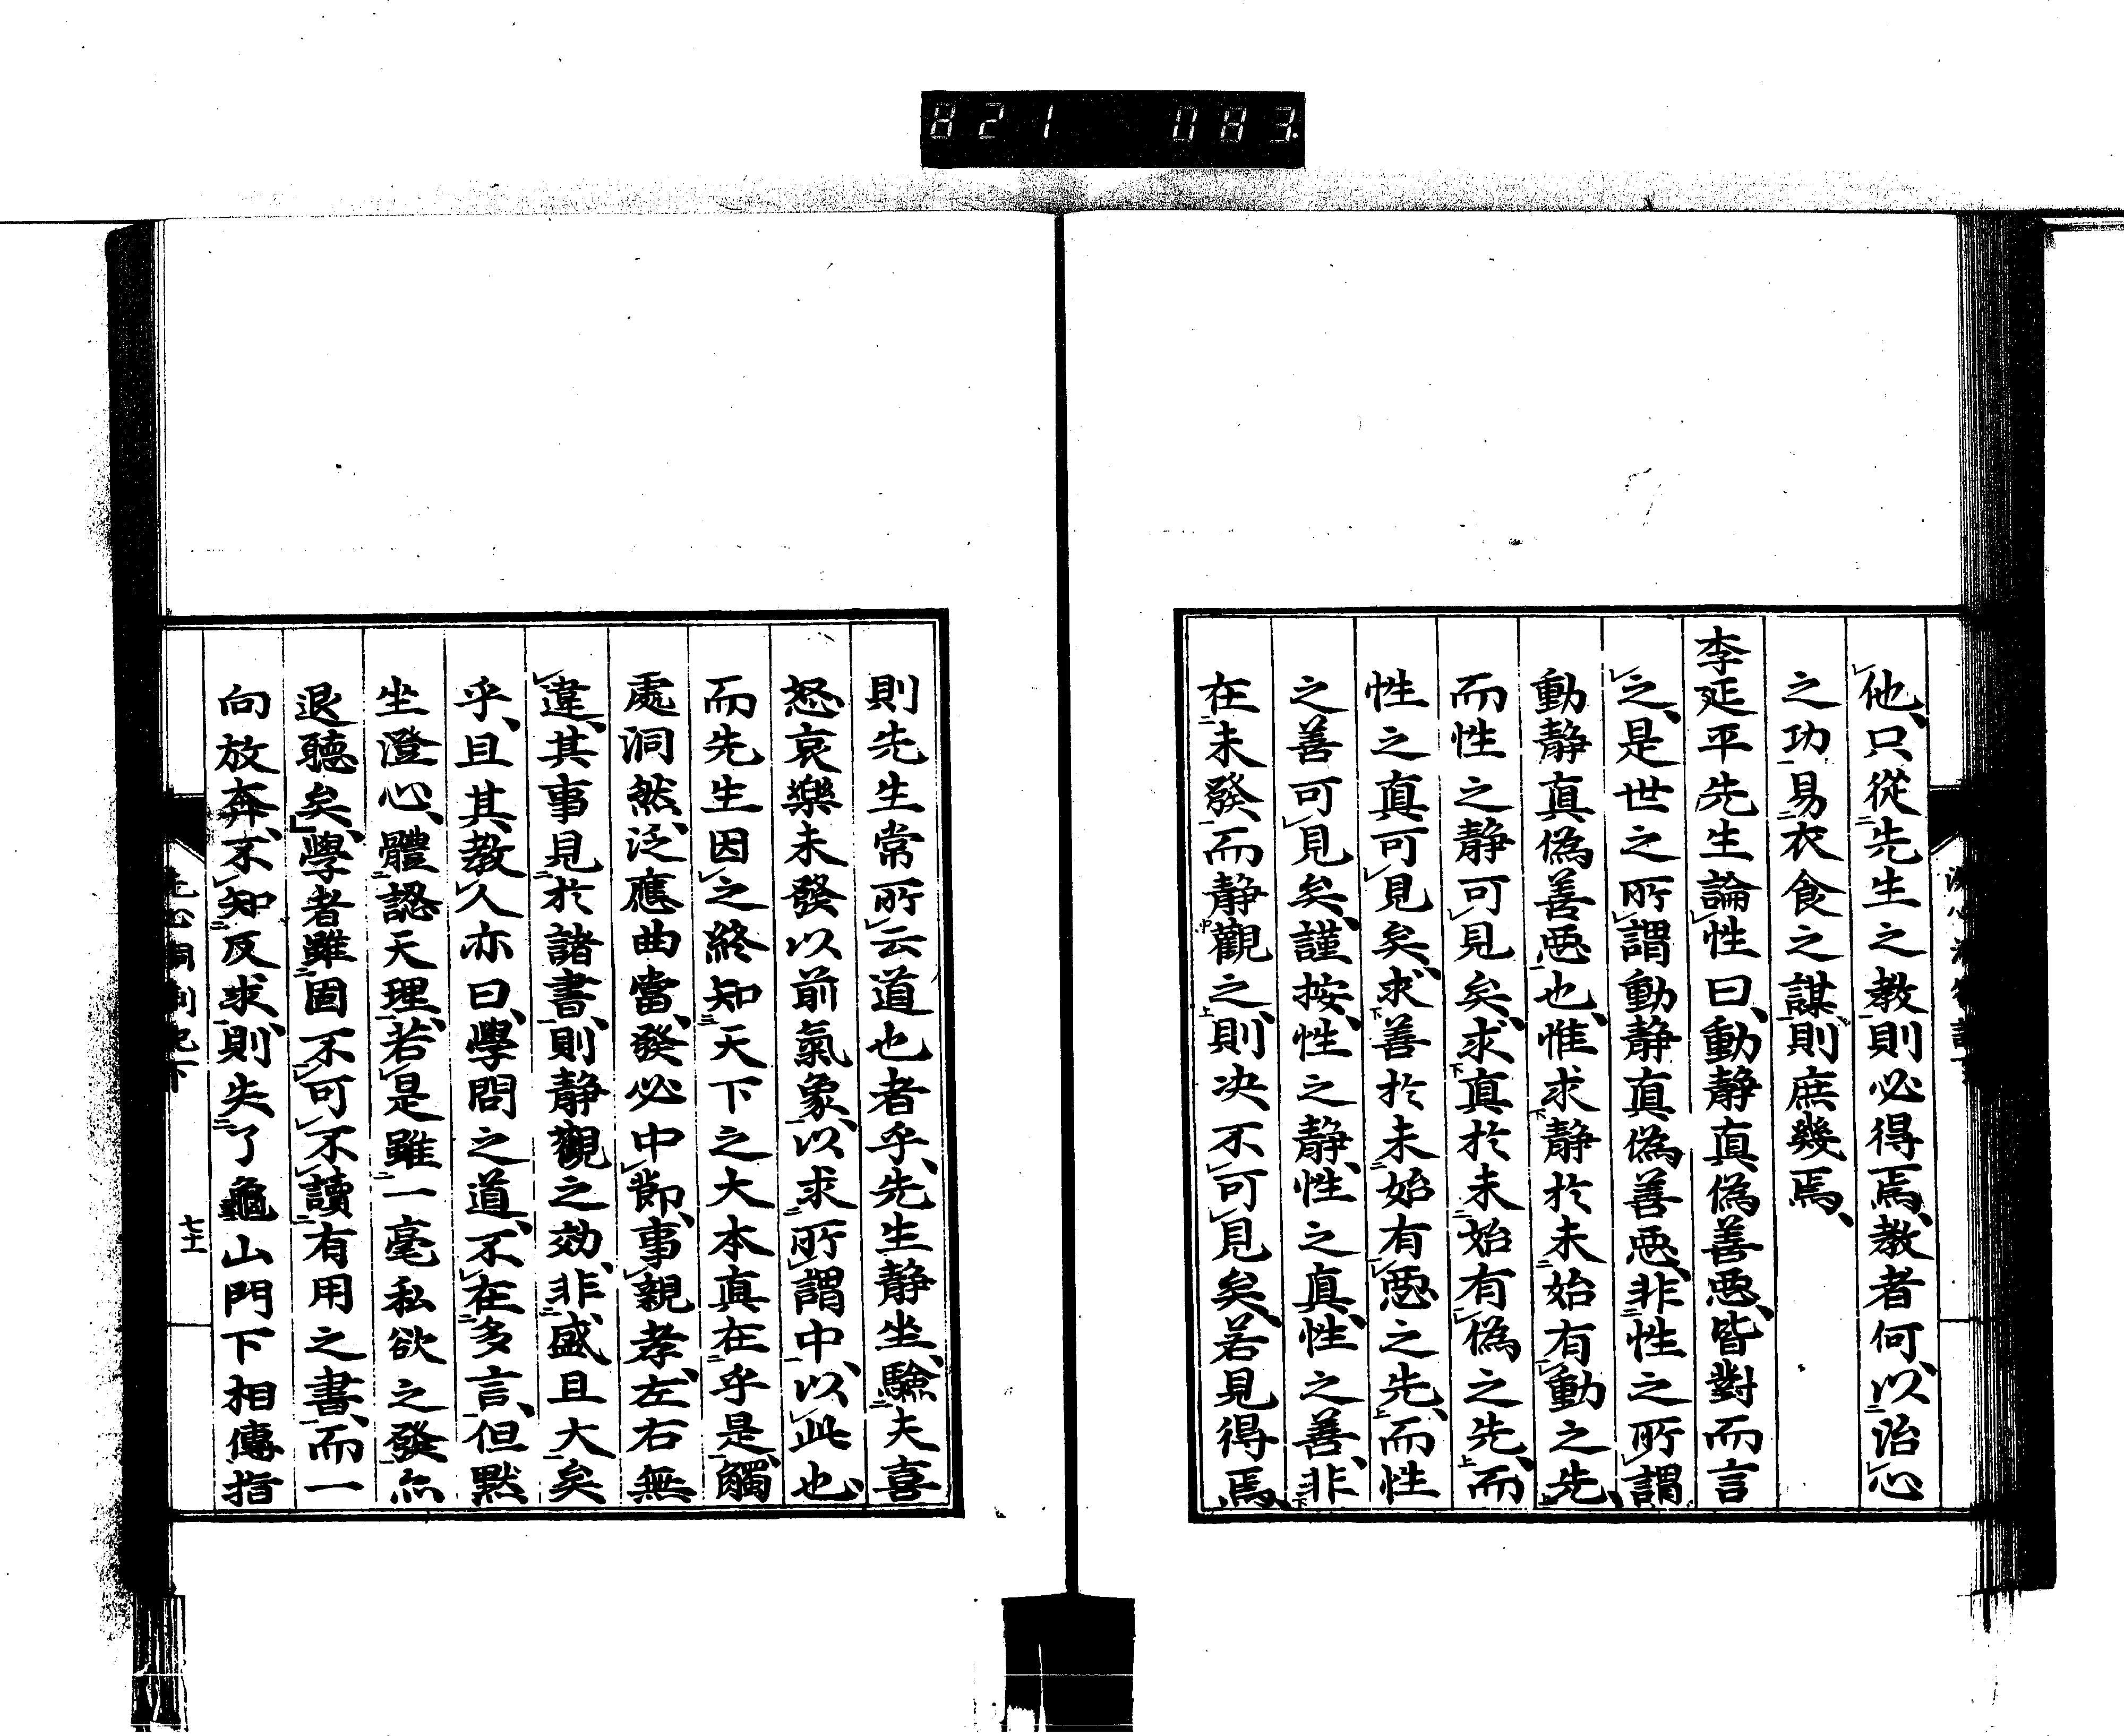 821 083
他、只從先生之教則必得焉、教者何、以治心
之功易衣食之謀、則庶幾焉、
李延平先生論性曰、動静真偽善惡、皆對而言
之、是世之所謂動静真偽善惡、非性之所謂
動静真偽善惡也、惟求静於未始有動之先、
而性之静可見矣、求真於未始有偽之先、而
性之真可見矣、求善於未始有惡之先、而性
之善可見矣、謹按、性之静、性之真、性之善、非
在未發、而静觀之、則决不可見矣、若見得焉、
則先生常所云道也者乎、先生静坐、驗夫喜
怒哀樂未發以前氣象、以求所謂中、以此也、
而先生因之終知天下之大本真在乎是、觸
處洞然、泛應曲當、發必中節、事親孝、左右無
違、其事見於諸書、則静觀之効、非盛且大矣
乎、且其教人亦曰、學問之道、不在多言、但默
坐澄心、體認天理、若是雖一毫私欲之發亦
退聽矣、學者雖固不可不讀有用之書、而一
向放奔、不知反求、則失了龜山門下相傳指
洗心洞劄記下
七十一